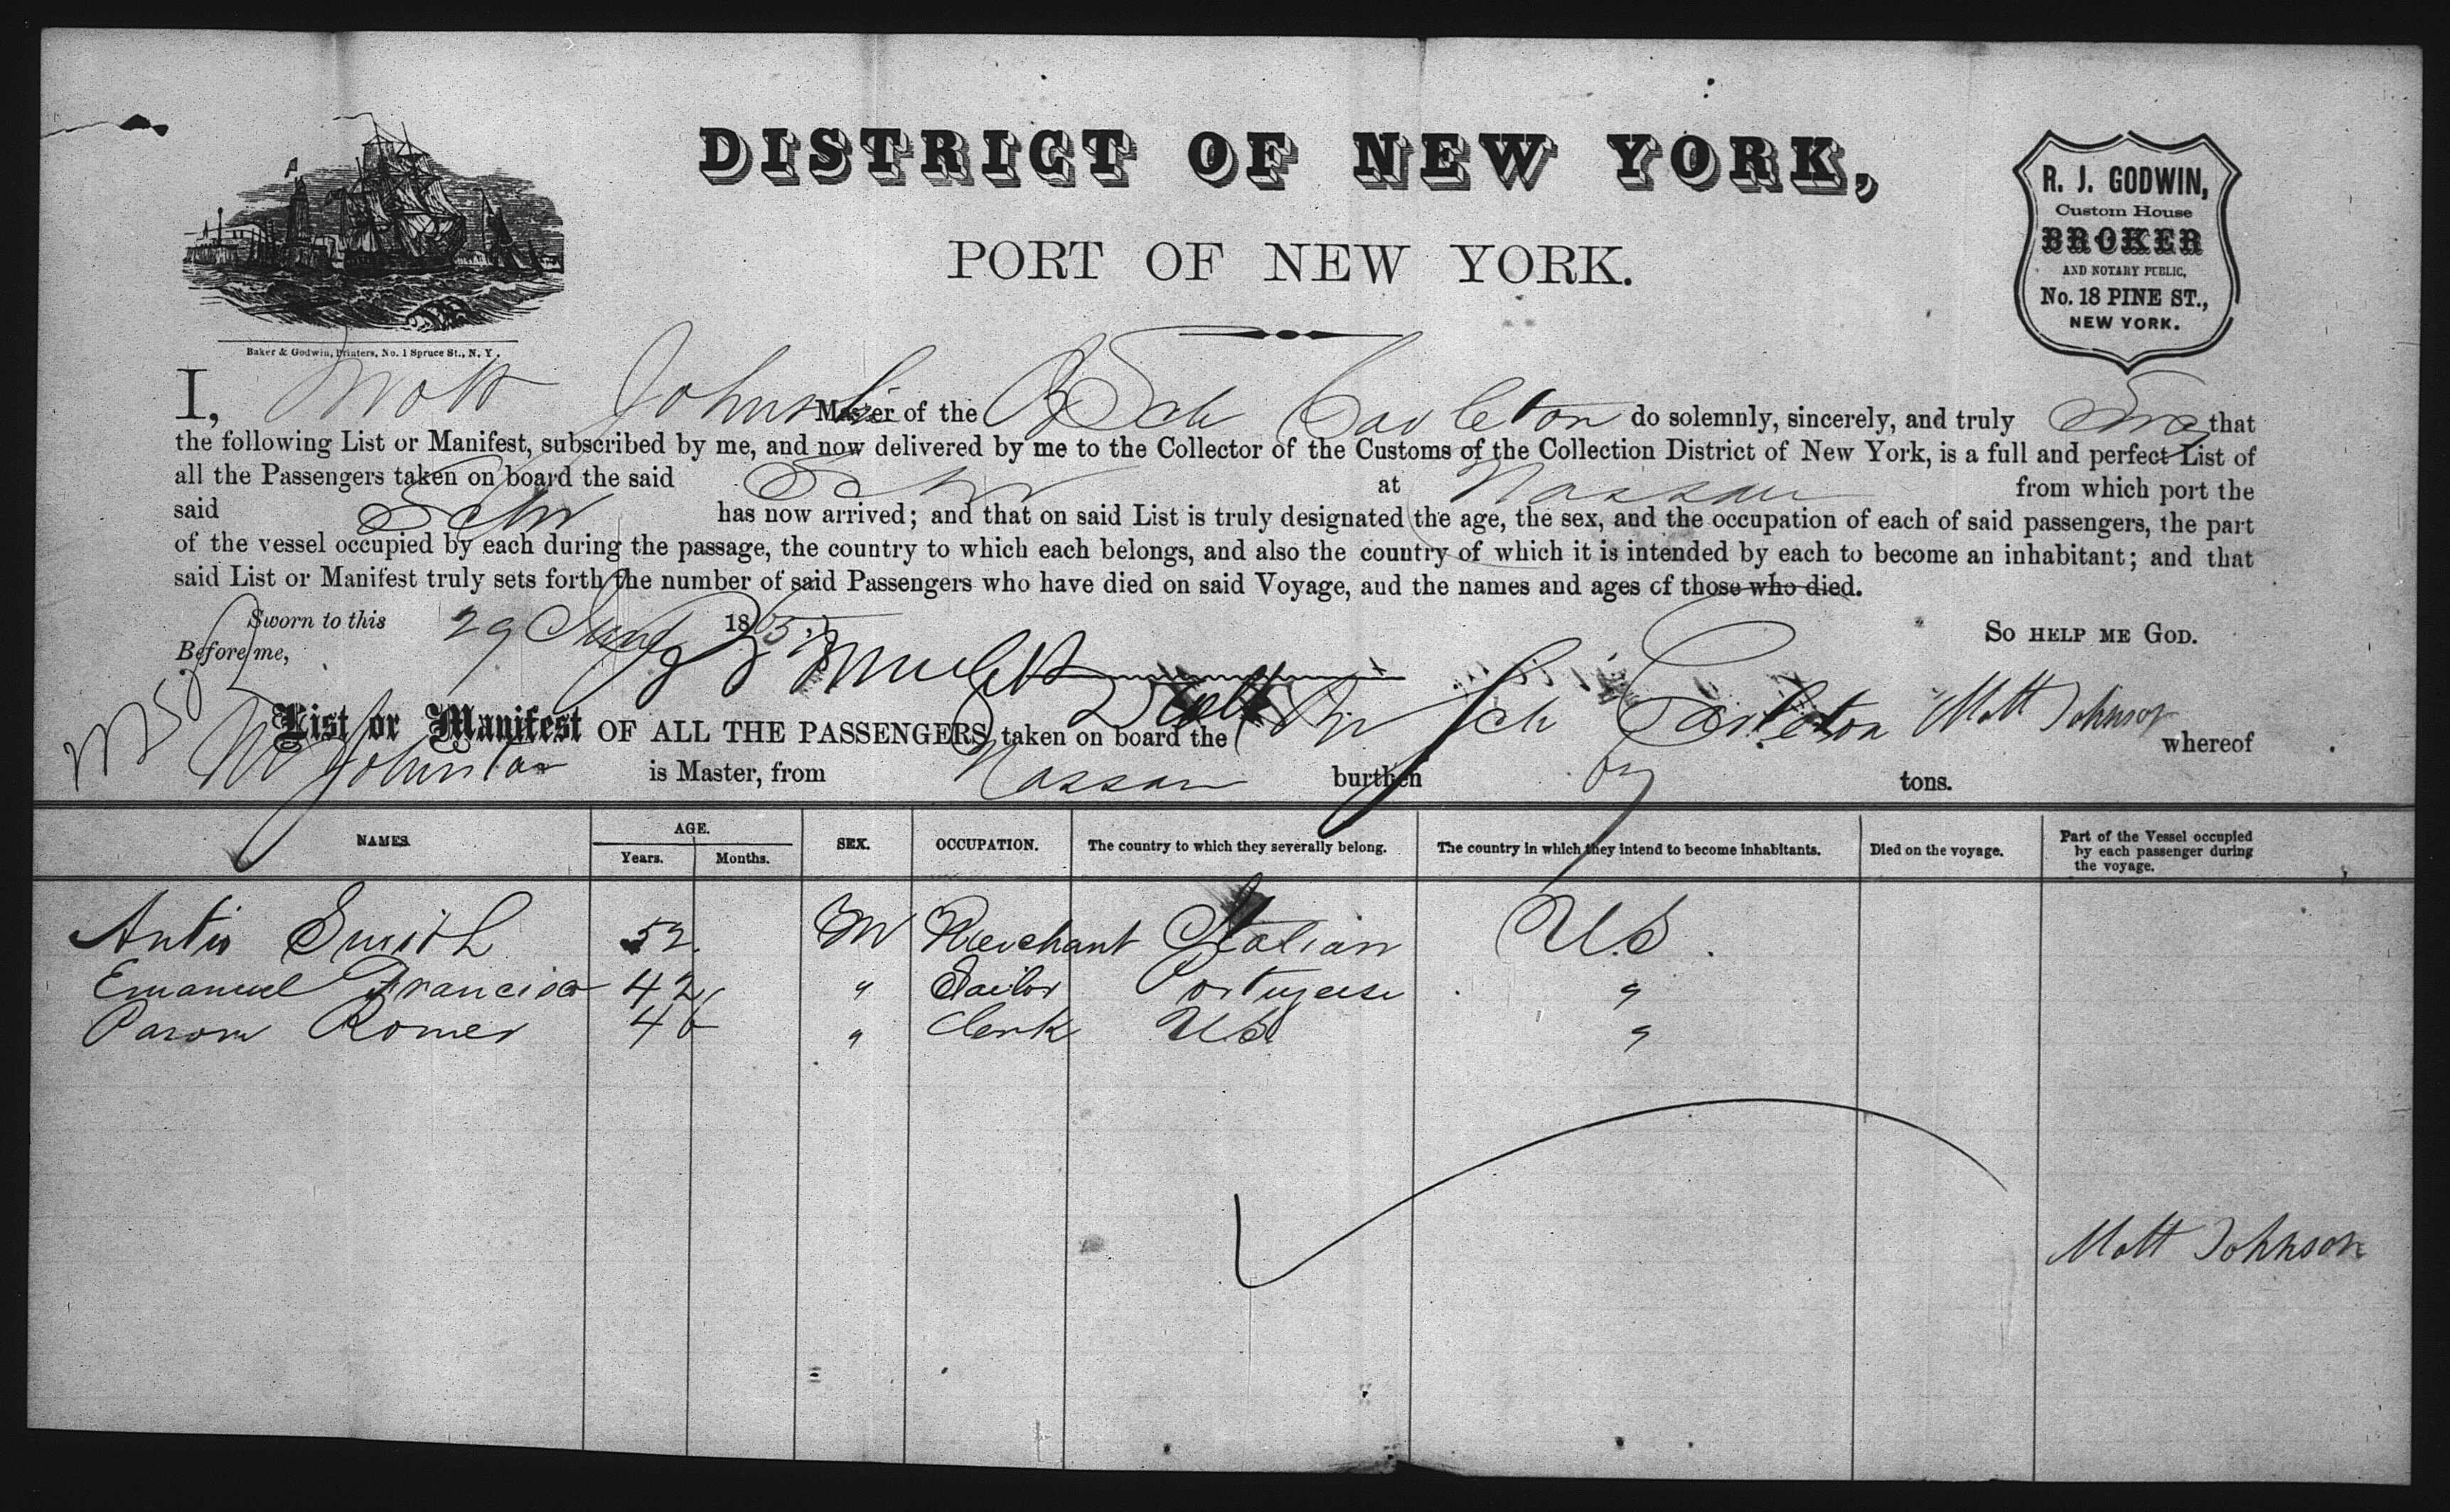 DISTRICT OF NEW YORK,
PORT OF NEW YORK.
R. J. GODWIN,
Custom House
BROKER
AND NOTARY PUBLIC,
No. 18 PINE ST.,
NEW YORK.
Baker & Godwin, Printers, No. 1 Spruce St., N. Y.
I, Matt Johnson Master of the Br Sch Carleton do solemnly, sincerely, and truly that
the following List or Manifest, subscribed by me, and now delivered by me to the Collector of the Customs of the Collection District of New York, is a full and perfect List of
all the Passengers taken on board the said Schr at Nassau from which port the
said Schr has now arrived; and that on said List is truly designated the age, the sex, and the occupation of each of said passengers, the part
of the vessel occupied by each during the passage, the country to which each belongs, and also the country of which it is intended by each to become an inhabitant; and that
said List or Manifest truly sets forth the number of said Passengers who have died on said Voyage, and the names and ages of those who died.
Sworn to this 29 June 1865 So HELP ME GOD.
Before me,
List or Manifest OF ALL THE PASSENGERS taken on board the Br Sch Carleton Matt Johnson whereof
Johnson is Master, from Nassau burthen tons.
NAMES. AGE. SEX. OCCUPATION. The country to which they severally belong. The country in which they intend to become inhabitants. Died on the voyage. Part of the Vessel occupied by each passenger during the voyage.
Years. Months.
Smith 52 M Merchant Italian U.S.
Emanuel Francisco 42 " Sailor Portugese "
Romer 46 " Clerk U.S. "
Matt Johnson